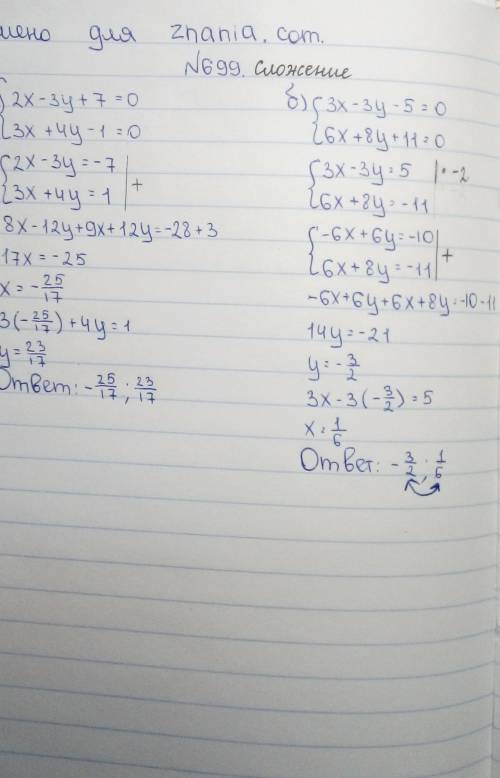 для znania.com.
№699. Сложение
2x-3y+7=0
3x+4y-1=0
2x-3y=-7
3x+4y=1 | +
8x-12y+9x+12y=-28+3
17x=-25
x=-25/17
3(-25/17)+4y=1
y=23/17
Ответ: -25/17; 23/17
б) {3x-3y-5=0
{6x+8y+11=0
{3x-3y=5 |·-2
{6x+8y=-11
{-6x+6y=-10
{6x+8y=-11 | +
-6x+6y+6x+8y=-10-11
14y=-21
y=-3/2
3x-3(-3/2)=5
x=1/6
Ответ: -3/2; 1/6